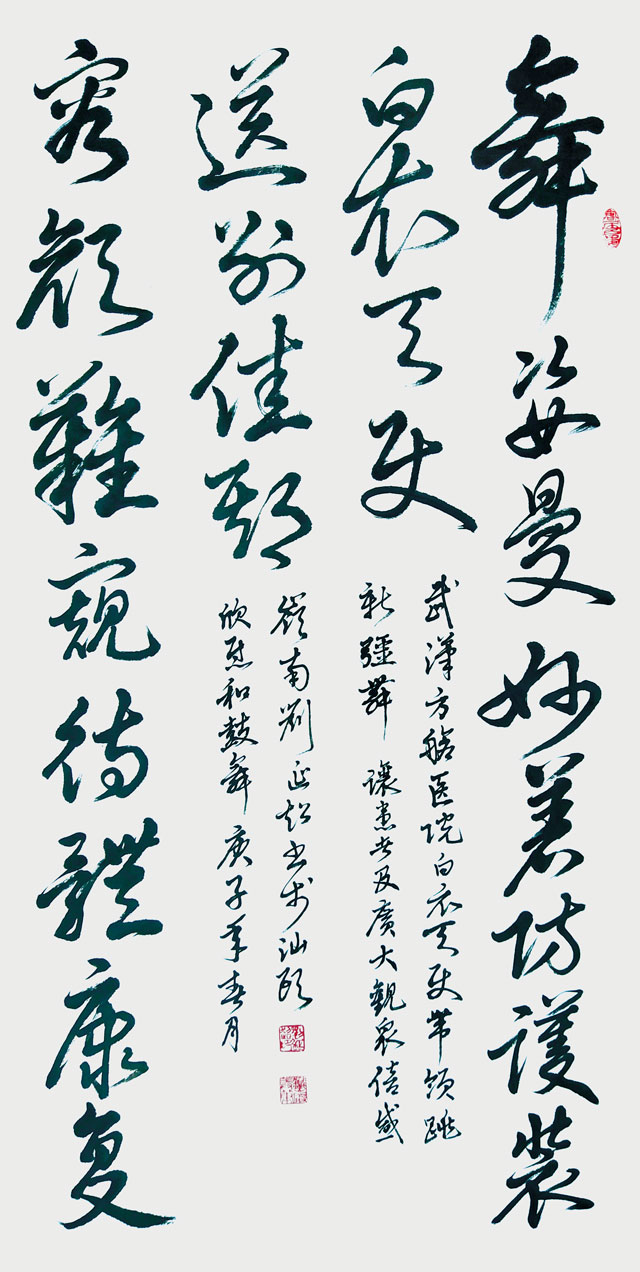 舞姿曼妙著防護裝
白衣天使
容顔難窺待體康复
送别佳期
武漢方艙医院白衣天使帶領跳
新疆舞 讓患者及廣大觀衆倍感
欣慰和鼓舞 庚子年春月
嶺南劉延超书於汕頭